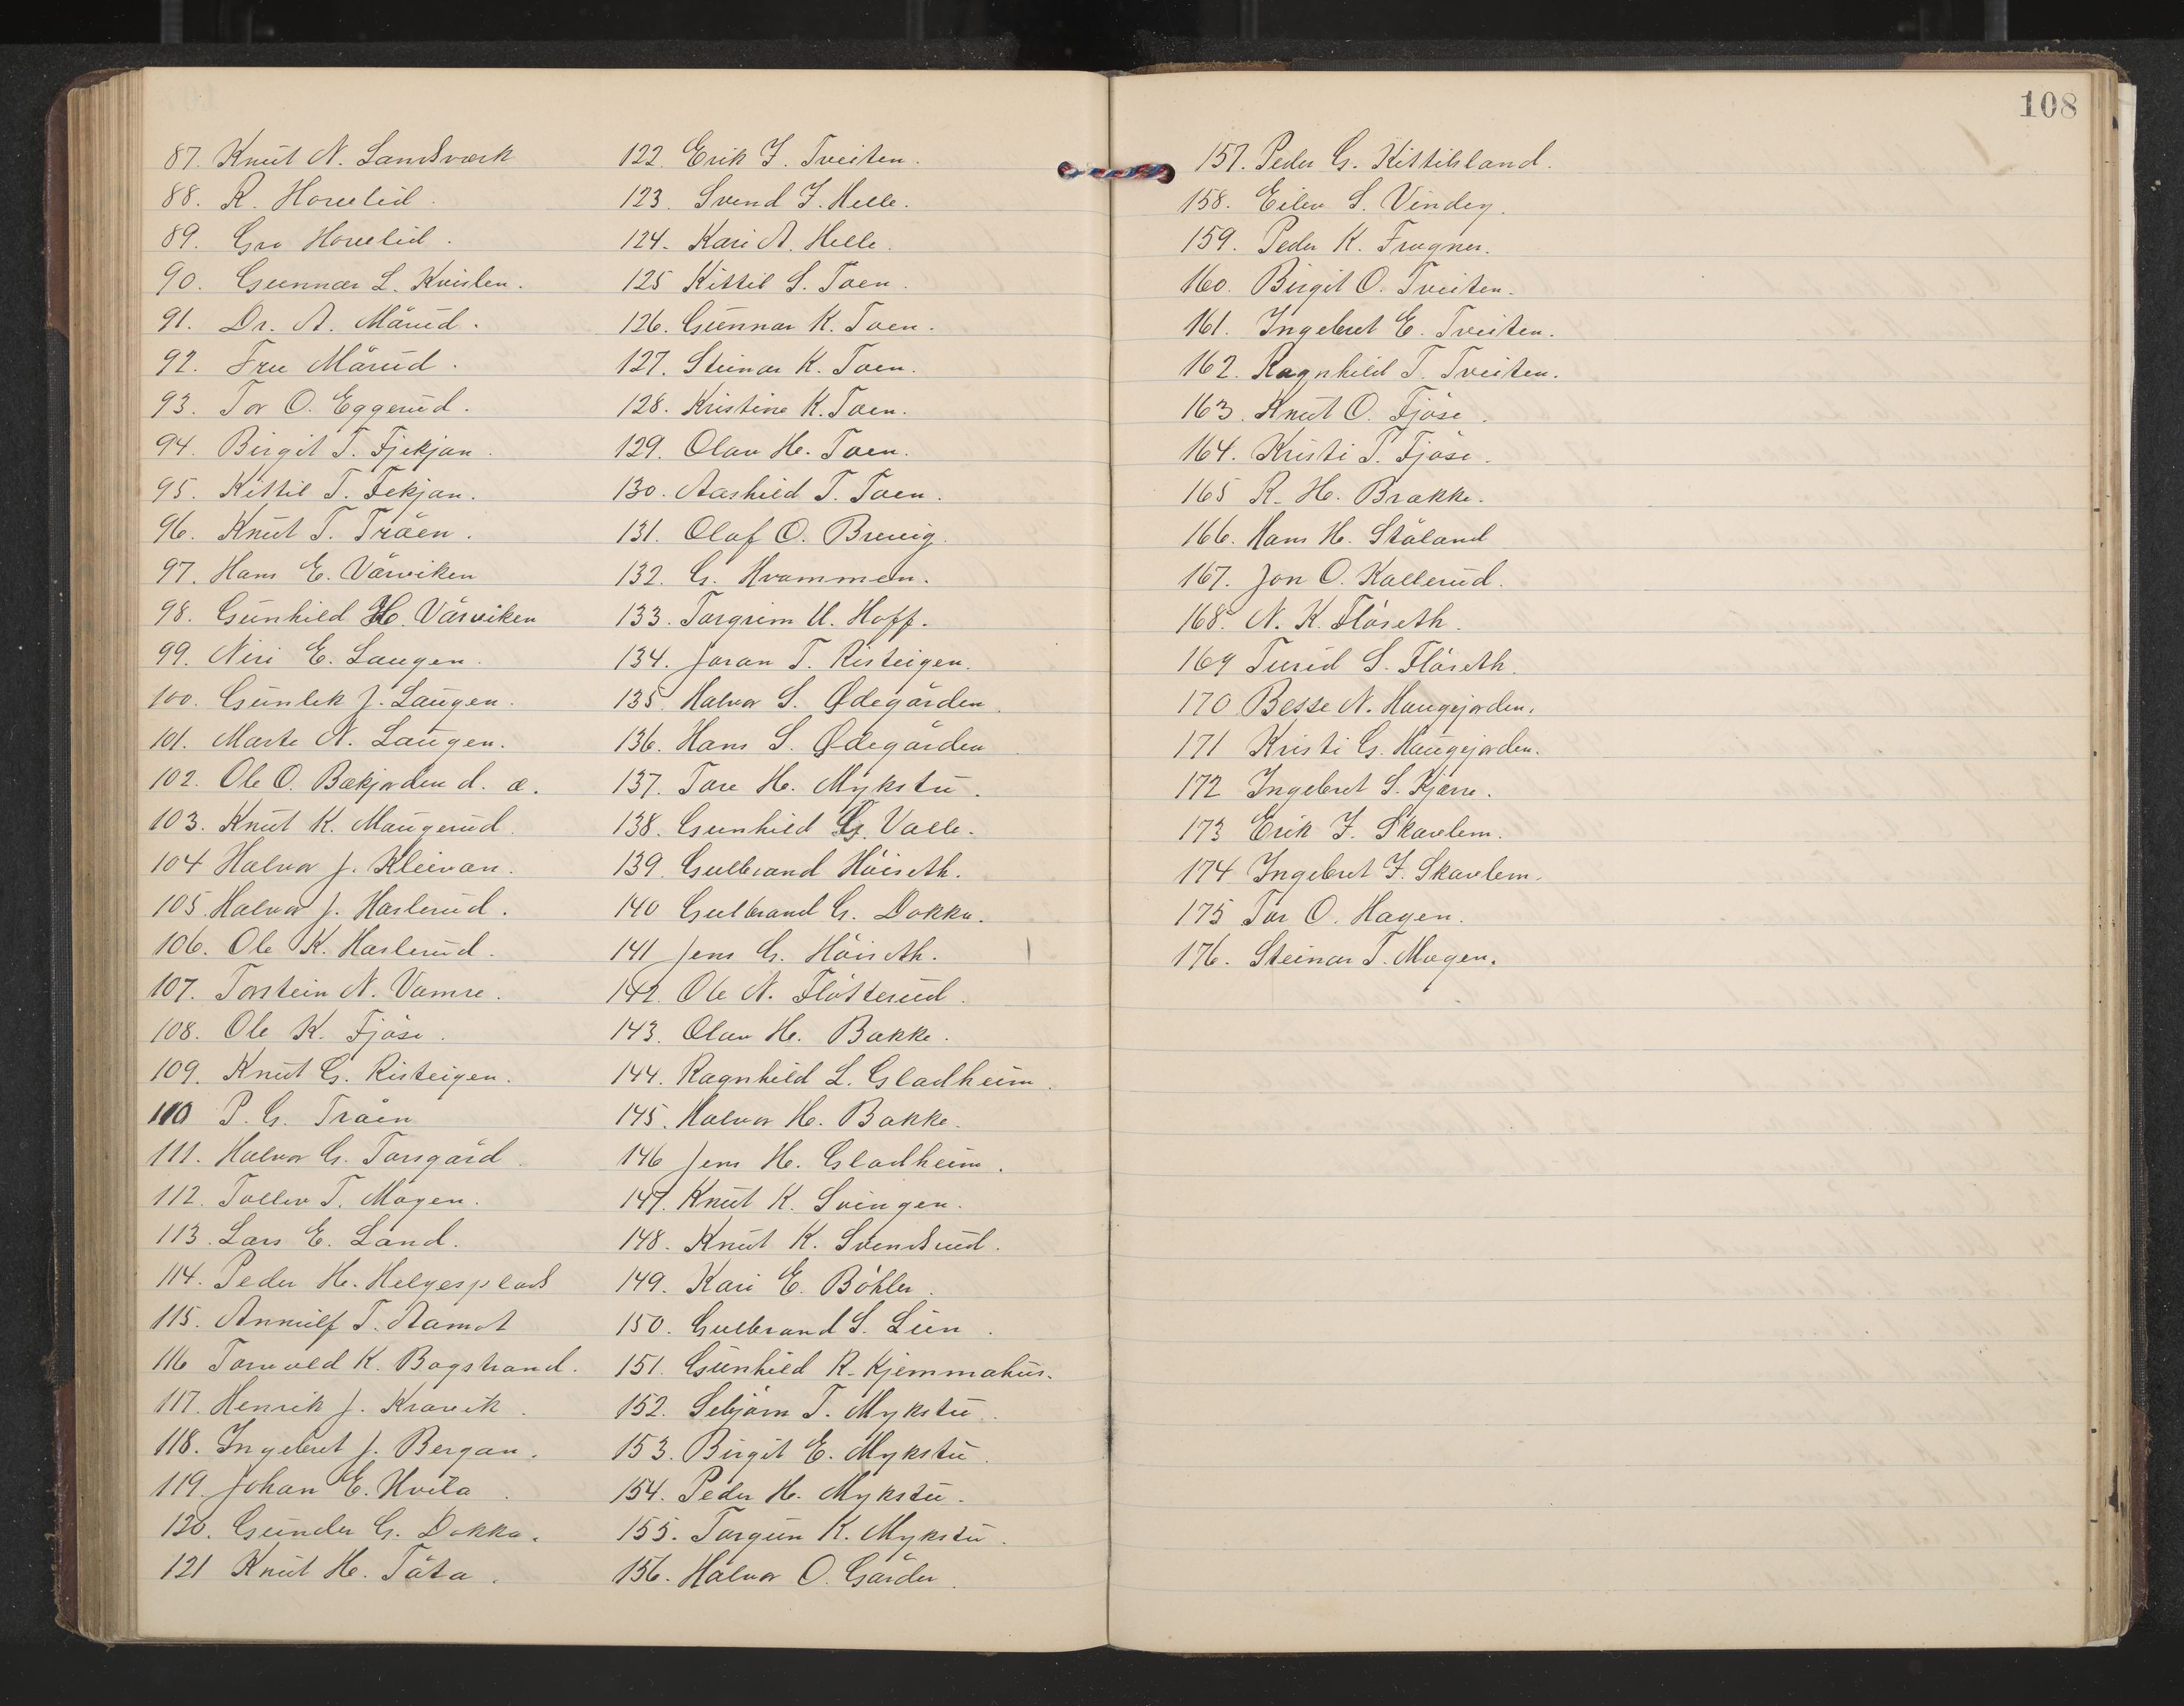 108
87. Knut N. Landsværk
88. R. Hovelid.
89. Gro Hovelid.
90. Gunnar L. Kvislen.
91. Dr. A. Mårud.
92. Fru Mårud.
93. Tor O. Eggerud.
94. Birgit T. Fjekjan.
95. Kittil T. Fekjan.
96. Knut T. Tråen.
97. Hans E. Vårviken
98. Gunhild H. Vårviken
99. Niri E. Laugen.
100. Gunlek J. Laugen.
101. Marte N. Laugen.
102. Ole O. Bækjorden d. æ.
103. Knut K. Maugerud.
104 Halvor J. Kleivan.
105. Halvor J. Haslerud.
106. Ole K. Haslerud.
107. Torstein N. Vamre.
108. Ole K. Fjøse.
109. Knut G. Risteigen.
110 P. G. Tråen
111. Halvor G. Torsgård.
112. Tollev T. Mogen.
113. Lars E. Land.
114. Peder H. Helgesplads
115. Annulf T. Aamot
116 Torvald K. Bogstrand.
117. Henrik J. Kravik.
118. Ingebret J. Bergan.
119. Johan E. Hvila.
120. Gunder G. Dokka.
121 Knut H. Tåta.
122. Erik F. Tveiten.
123. Svend F. Helle.
124. Kari A. Helle.
125 Kittil S. Toen.
126. Gunnar K. Toen.
127. Steinar K. Toen.
128. Kristine K. Toen.
129. Olav H. Toen.
130. Aashild T. Toen.
131. Olaf O. Brevig.
132. G. Hvammen.
133. Torgrim U. Hoff.
134. Joran T. Risteigen.
135. Halvor S. Ødegården.
136. Hans S. Ødegården.
137. Tore H. Mykstu.
138. Gunhild G. Valle.
139. Gulbrand Höiseth.
140 Gulbrand G. Dokka.
141 Jens G. Höiseth.
142. Ole N. Flåtterud.
143. Olav H. Bakke.
144. Ragnhild L. Gladheim.
145. Halvor H. Bakke.
146 Jens H. Gladheim.
147. Knut K. Svingen.
148. Knut K. Svendsrud.
149. Kari E. Böhler.
150. Gulbrand S. Lien.
151. Gunhild R. Kjemmahus.
152. Sebjörn T. Mykstu.
153. Birgit E. Mykstu.
154. Peder H. Mykstu.
155. Torgun K. Mykstu.
156. Halvor O. Gårder.
157. Peder G. Kittilsland.
158. Eilev S. Vindeg.
159. Peder K. Frogner.
160. Birgit O. Tveiten.
161. Ingebret E. Tveiten.
162. Ragnhild T. Tveiten.
163. Knut O. Fjöse.
164. Kristi T. Fjöse.
165 R. H. Brakke.
166. Hans H. Ståland
167. Jon O. Kallerud.
168. N. K. Flåseth.
169 Turid S. Flåseth.
170 Besse N. Haugejorden.
171 Kristi G. Haugejorden.
172 Ingebret S. Kjærre.
173 Erik F. Skavlem.
174 Ingebret F. Skavlem.
175 Tor O. Hagen.
176. Steinar T. Mogen.